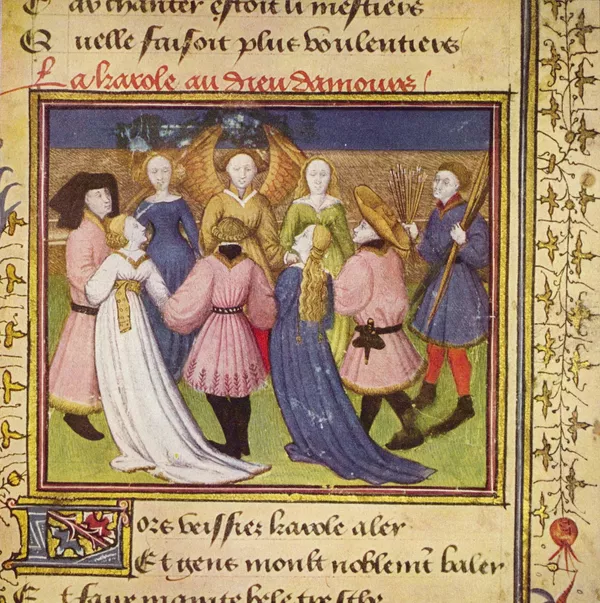 av chanter estoit li mestiers
Q uelle faisoit plus voulentiers
La karole au dieu damours
Lors veissiez karole aler
Et gens moult noblemt baler
Et faire mainte bele tresche